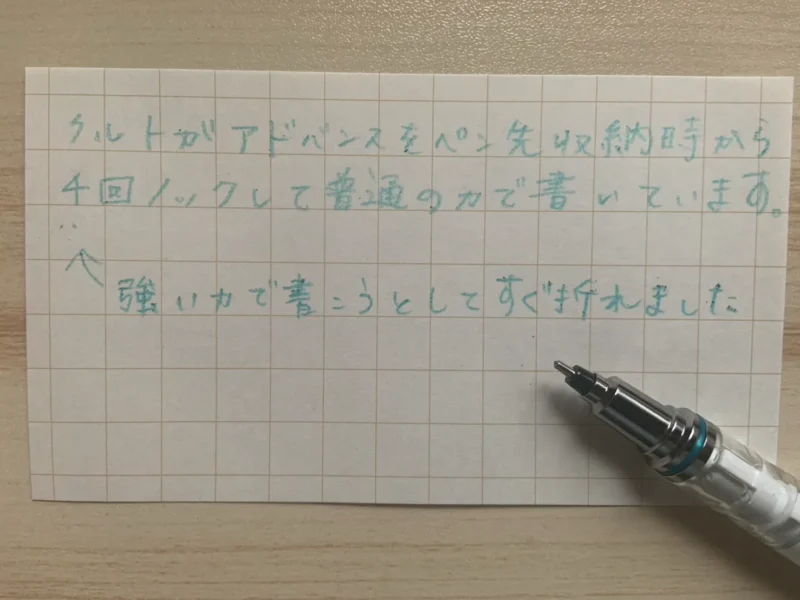 クルトガアドバンスをペン先収納時から
4回ノックして普通の力で書いています。
↑
強い力で書こうとしてすぐ折れました